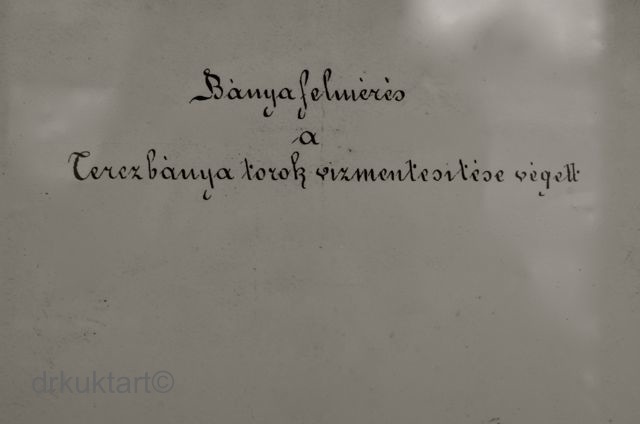 Bányafelmérés
a
Terezbánya torok vizmentesitése végett
drkuktart©